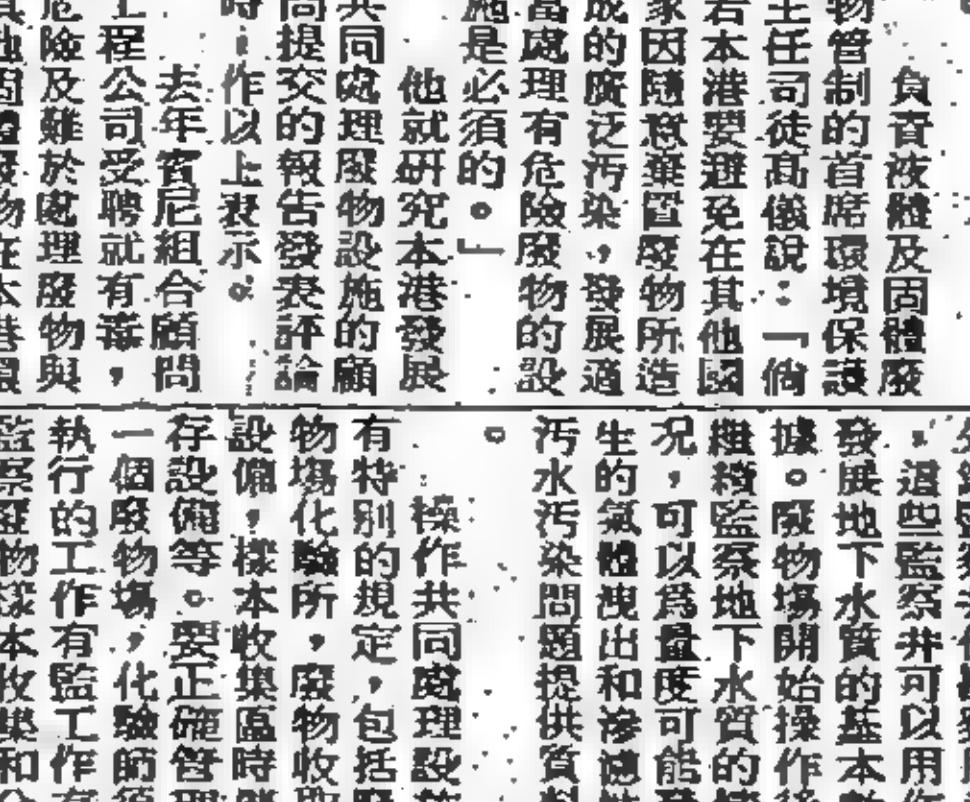 負責液體及固體廢
物管制的首席環境保護
主任司徒高儀說：「倘
若本港要避免在其他國
家因隨意棄置廢物所造
成的廣泛污染，發展適
當處理有危險廢物的設
施是必須的。」
他就研究本港發展
共同處理廢物設施的顧
問提交的報告發表評論
時，作以上表示。
去年賓尼組合顧問
工程公司受聘就有毒，
危險及難於處理廢物與
，這些監察井可以用
發展地下水質的基本
據。廢物場開始操作
繼續監察地下水質的
況，可以爲量度可能
生的氣體洩出和滲濾
污水污染問題提供資料
。
操作共同處理設
有特別的規定，包括
物場化驗所，廢物收
設備，樣本收集區時
存設備等。要正確管理
一個廢物場，化驗師
執行的工作有監工作
監察廢物樣本收集和